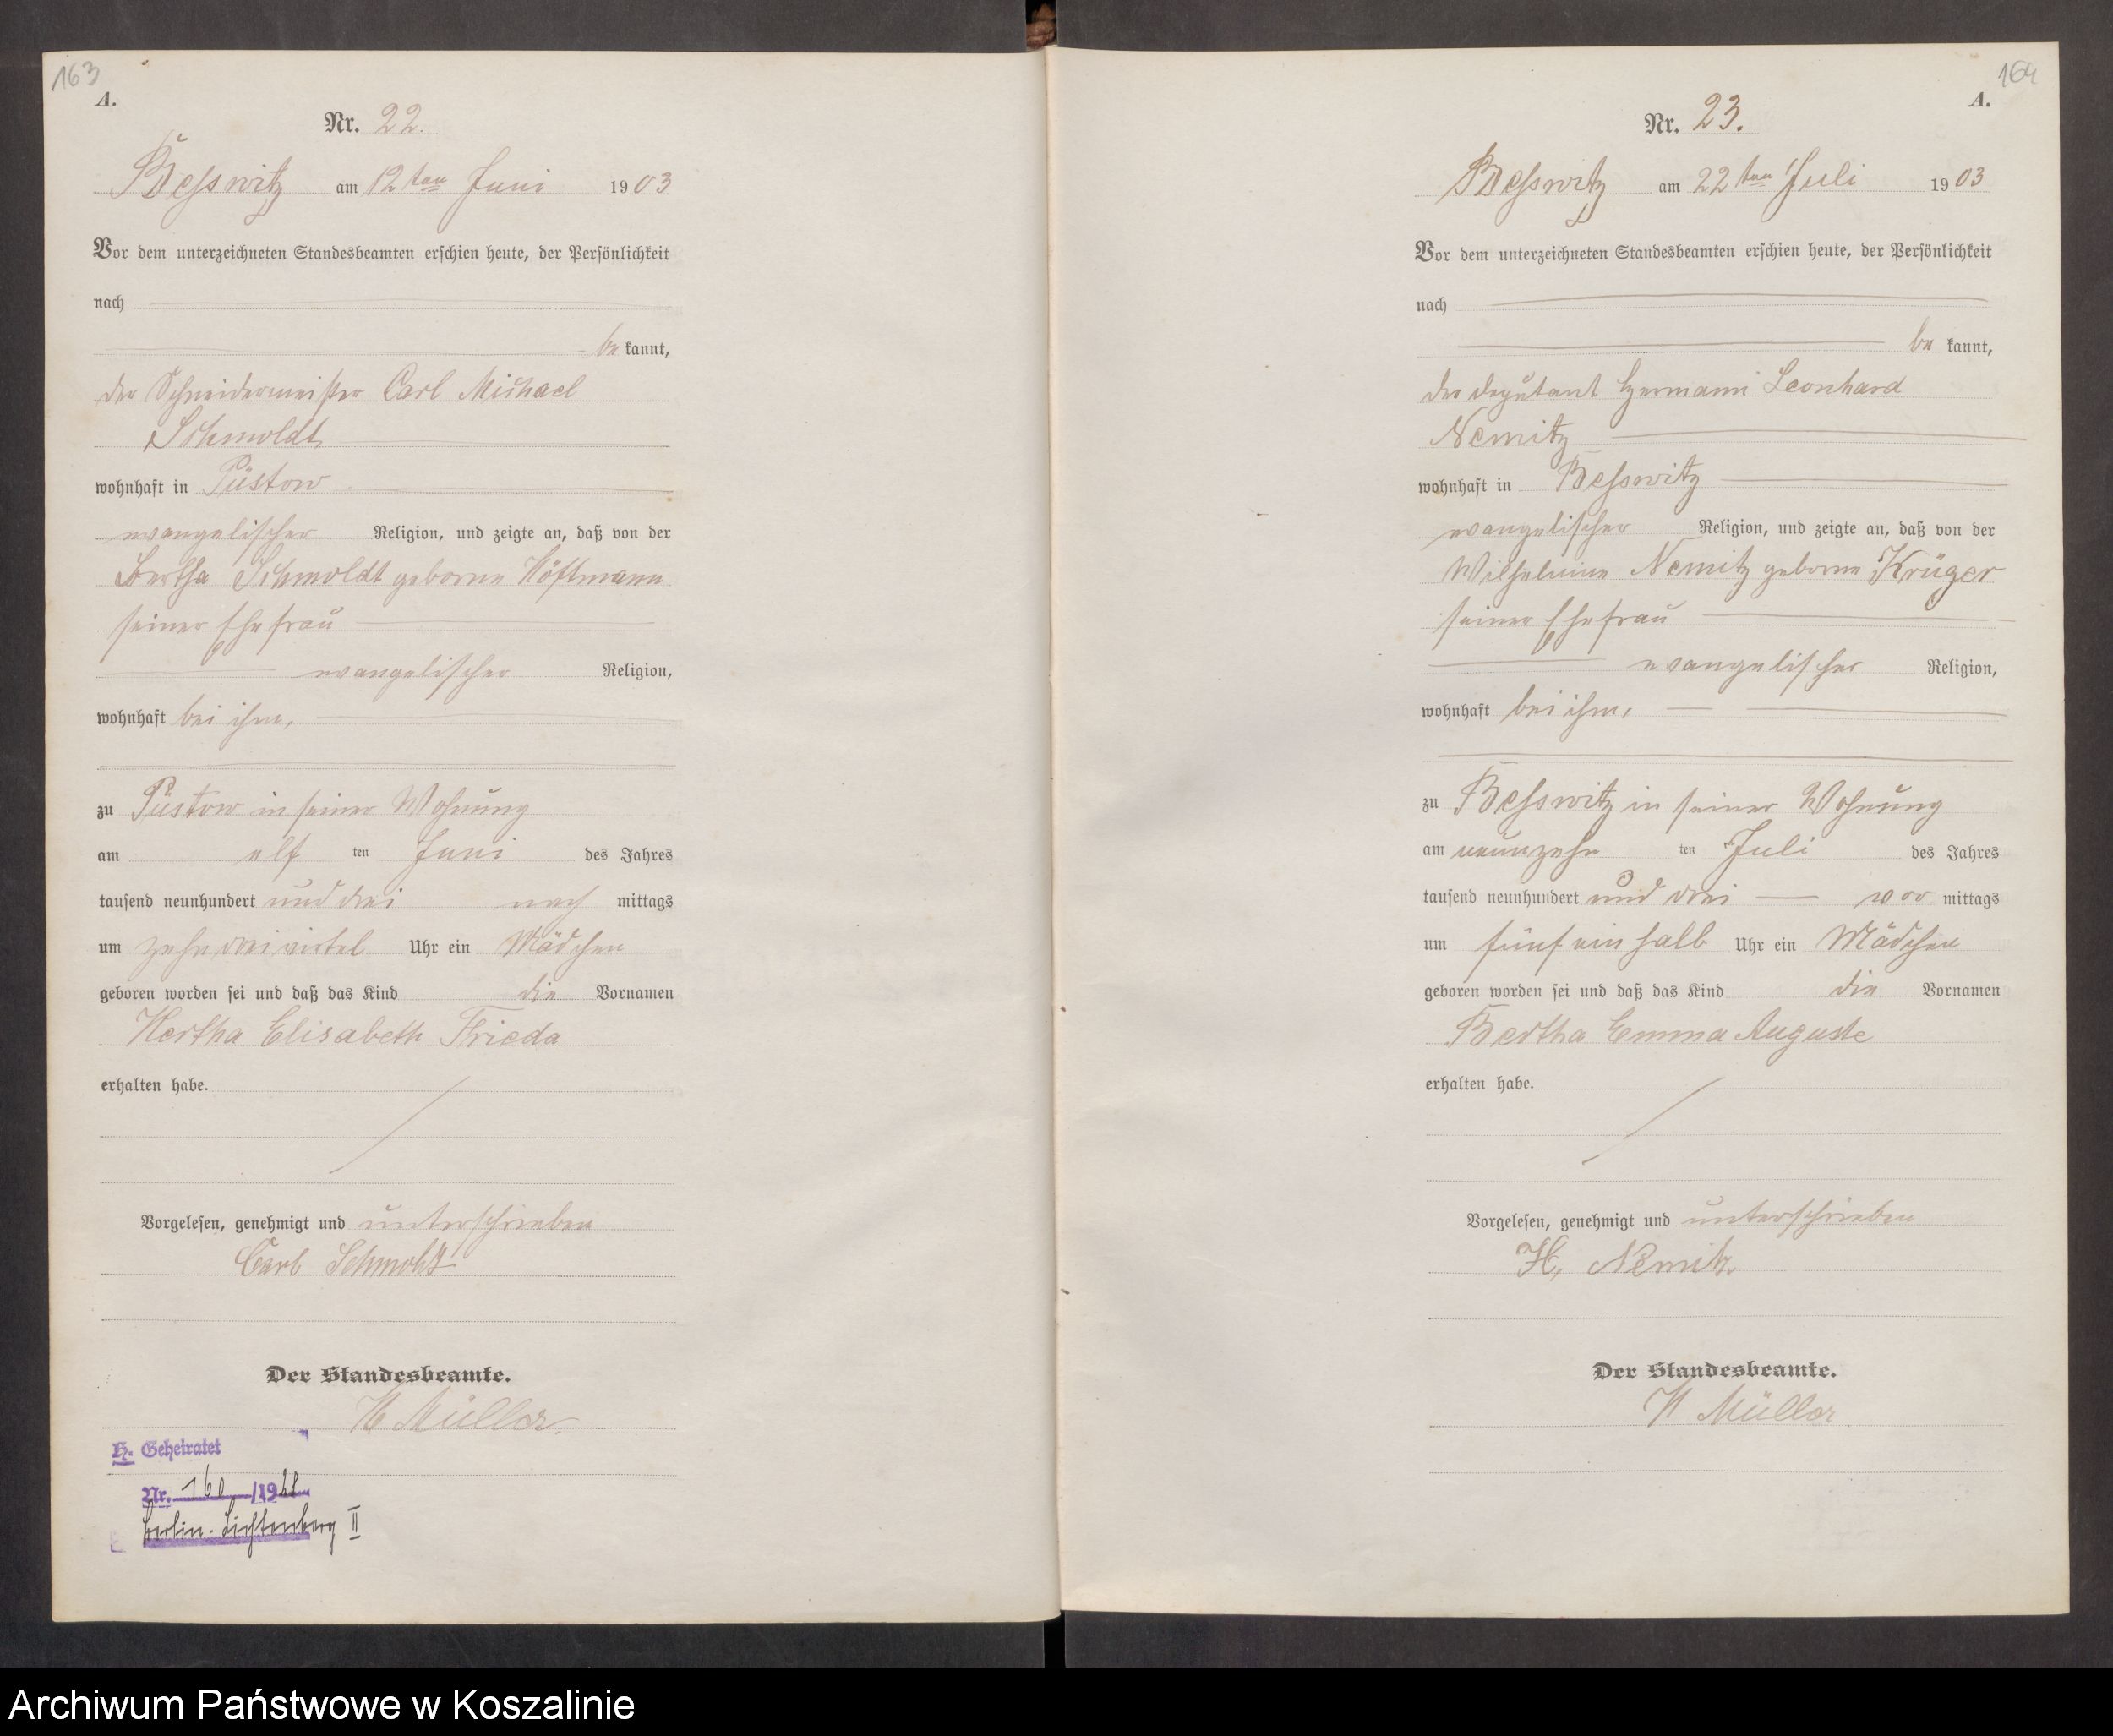 163
A.
Nr. 22.
Besswitz am 12ten Juni 1903
Vor dem unterzeichneten Standesbeamten erschien heute, der Persönlichkeit
nach
be kannt,
der Schneidermeister Carl Michael
Schmoldt
wohnhaft in Püstow
evangelischer Religion, und zeigte an, daß von der
Bertha Schmoldt geborne Höftmann
seiner Ehefrau
evangelischer Religion,
wohnhaft bei ihm,
zu Püstow in seiner Wohnung
am elf ten Juni des Jahres
tausend neunhundert und drei nach mittags
um zehn dreiviertel Uhr ein Mädchen
geboren worden sei und daß das Kind die Vornamen
Hertha Elisabeth Frieda
erhalten habe.
Vorgelesen, genehmigt und unterschrieben
Carl Schmoldt
Der Standesbeamte.
H Müller
H. Geheiratet
Nr. 160 /1928
Berlin-Lichtenberg II
164
A.
Nr. 23.
Besswitz am 22ten Juli 1903
Vor dem unterzeichneten Standesbeamten erschien heute, der Persönlichkeit
nach
be kannt,
der Deputant Hermann Leonhard
Nemitz
wohnhaft in Besswitz
evangelischer Religion, und zeigte an, daß von der
Wilhelmine Nemitz geborne Krüger
seiner Ehefrau
evangelischer Religion,
wohnhaft bei ihm,
zu Besswitz in seiner Wohnung
am neunzehn ten Juli des Jahres
tausend neunhundert und drei vor mittags
um fünf ein halb Uhr ein Mädchen
geboren worden sei und daß das Kind die Vornamen
Bertha Emma Auguste
erhalten habe.
Vorgelesen, genehmigt und unterschrieben
H, Nemitz
Der Standesbeamte.
H Müller
Archiwum Państwowe w Koszalinie